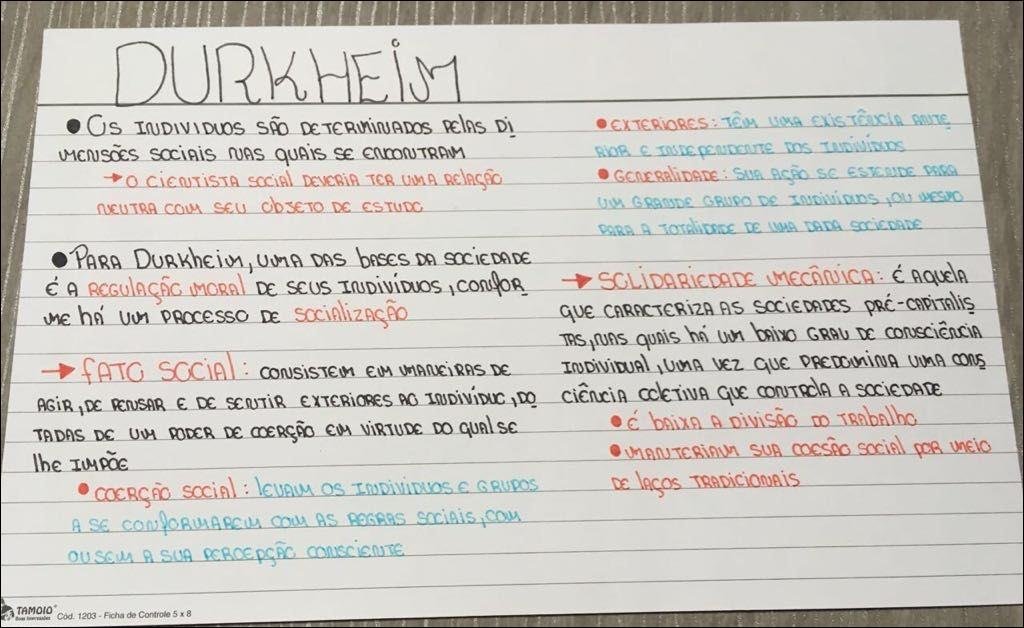 DURKHEIM
● OS INDIVIDUOS SÃO DETERMINADOS PELAS DI
MENSÕES SOCIAIS NAS QUAIS SE ENCONTRAM
→ O CIENTISTA SOCIAL DEVERIA TER UMA RELAÇÃO
NEUTRA COM SEU OBJETO DE ESTUDO
● PARA DURKHEIM, UMA DAS BASES DA SOCIEDADE
É A REGULAÇÃO MORAL DE SEUS INDIVÍDUOS, CONFOR
ME HÁ UM PROCESSO DE SOCIALIZAÇÃO
→ FATO SOCIAL: CONSISTEM EM MANEIRAS DE
AGIR, DE PENSAR E DE SENTIR EXTERIORES AO INDIVÍDUO, DO
TADAS DE UM PODER DE COERÇÃO EM VIRTUDE DO QUAL SE
LHE IMPÕE
● COERÇÃO SOCIAL: LEVAM OS INDIVÍDUOS E GRUPOS
A SE CONFORMAREM COM AS REGRAS SOCIAIS, COM
OU SEM A SUA PERCEPÇÃO CONSCIENTE
● EXTERIORES: TÊM UMA EXISTÊNCIA ANTE
RIOR E INDEPENDENTE DOS INDIVÍDUOS
● GENERALIDADE: SUA AÇÃO SE ESTENDE PARA
UM GRANDE GRUPO DE INDIVÍDUOS, OU MESMO
PARA A TOTALIDADE DE UMA DADA SOCIEDADE
→ SOLIDARIEDADE MECÂNICA: É AQUELA
QUE CARACTERIZA AS SOCIEDADES PRÉ-CAPITALIS
TAS, NAS QUAIS HÁ UM BAIXO GRAU DE CONSCIÊNCIA
INDIVIDUAL, UMA VEZ QUE PREDOMINA UMA CONS
CIÊNCIA COLETIVA QUE CONTROLA A SOCIEDADE
● É BAIXA A DIVISÃO DO TRABALHO
● MANTERIAM SUA COESÃO SOCIAL POR MEIO
DE LAÇOS TRADICIONAIS
TAMOIO®
Cód. 1203 - Ficha de Controle 5 x 8